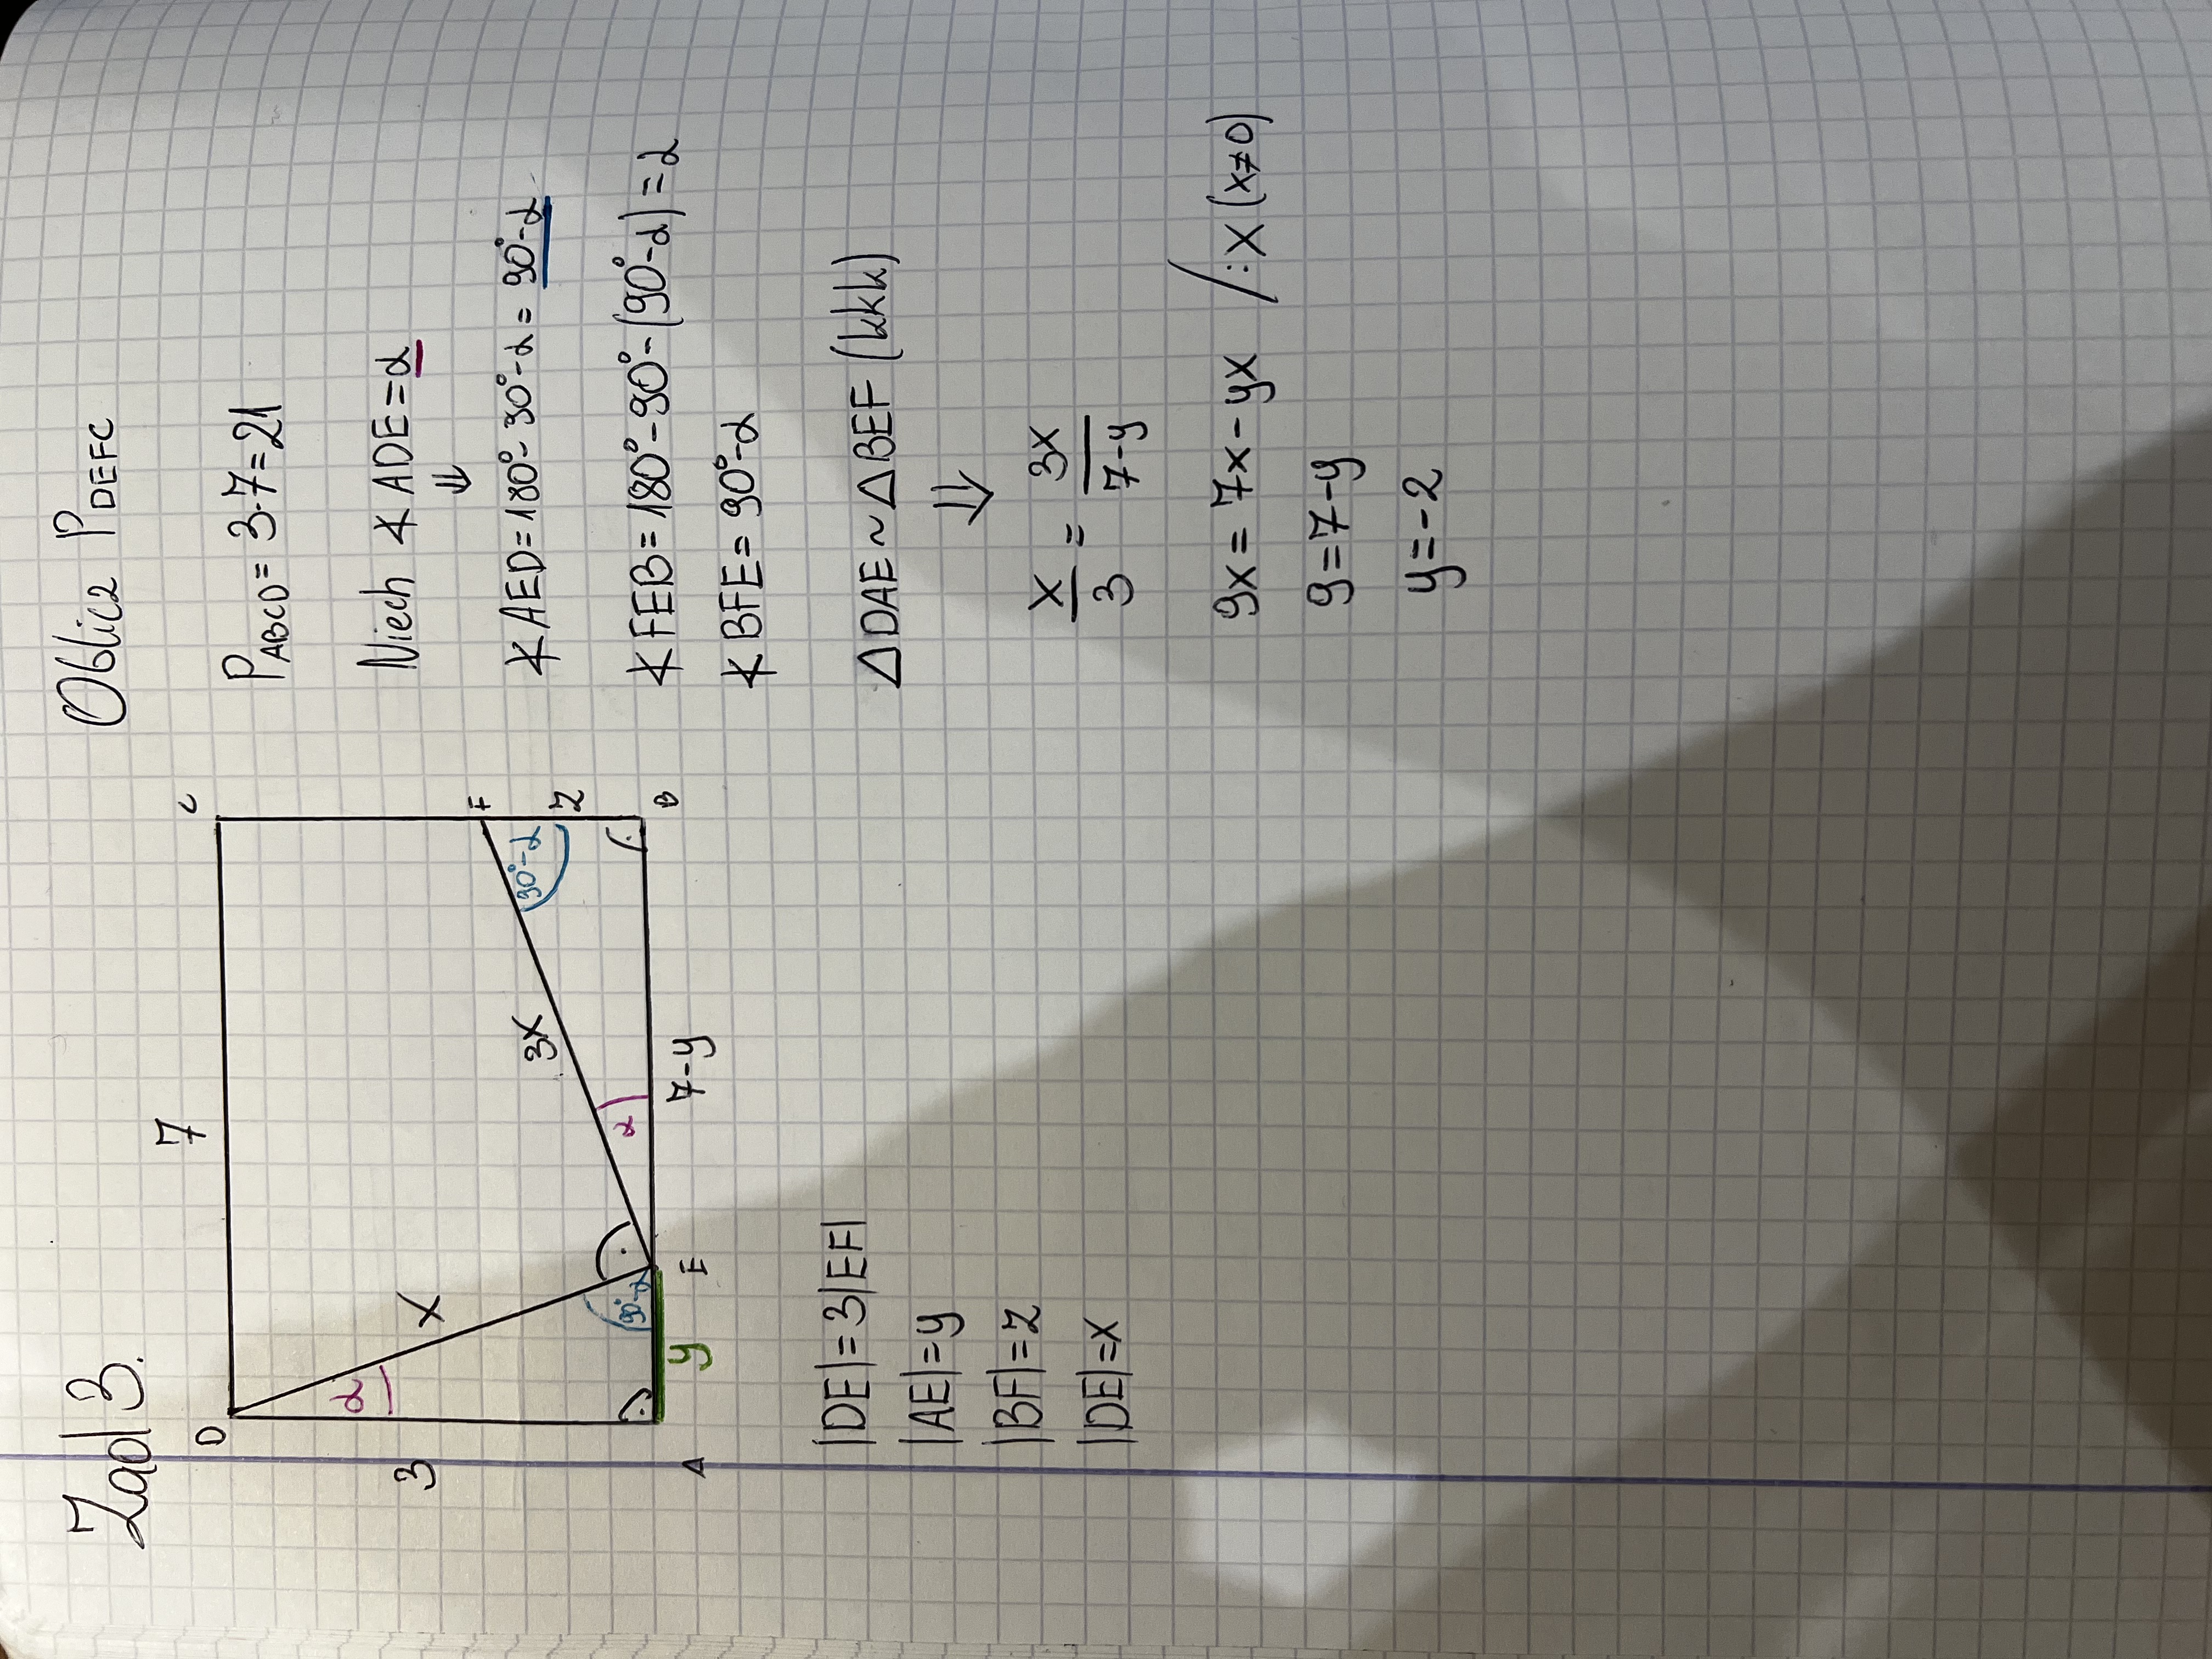 Zad 3.
7
D
C
α
x
3
3x
F
90°-α
z
90°-α
α
A
y
E
7-y
B
|DE|=3|EF|
|AE|=y
|BF|=z
|DE|=x
Oblicz PDEFC
PABCD=3·7=21
Niech ∢ADE=α
⇓
∢AED=180°-90°-α=90°-α
∢FEB=180°-90°-(90°-α)=α
∢BFE=90°-α
△DAE~△BEF (kkk)
⇓
x/3 = 3x/7-y
9x=7x-yx /:x (x≠0)
9=7-y
y=-2